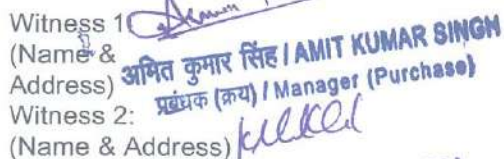 Witness 1
(Name &
Address)
अमित कुमार सिंह / AMIT KUMAR SINGH
प्रबंधक (क्रय) / Manager (Purchase)
Witness 2:
(Name & Address)